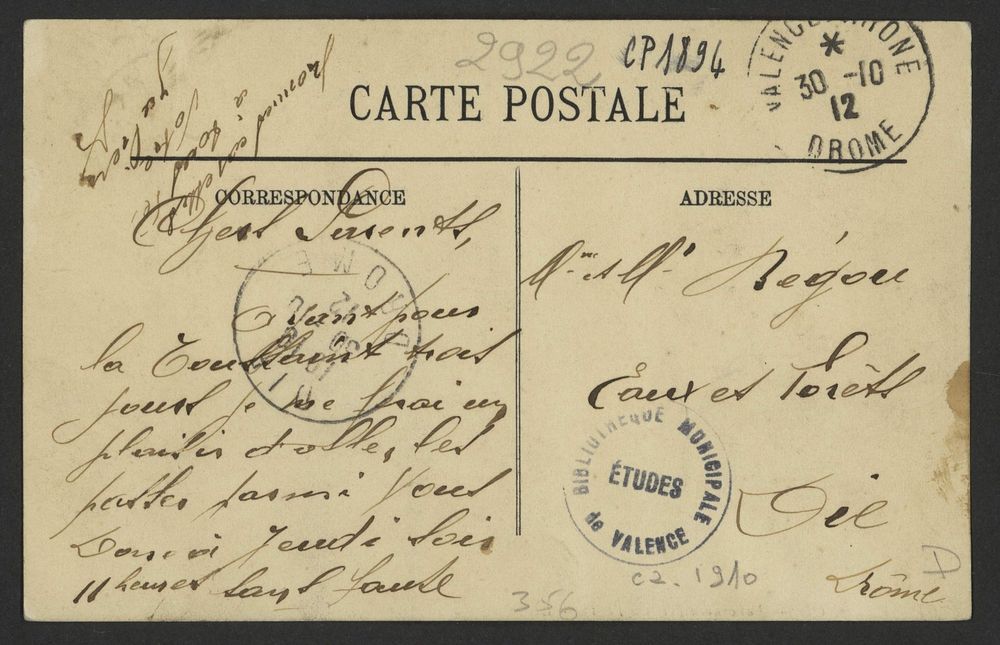 2922
CP1894
CARTE POSTALE
VALENCE S RHONE
*
30 -10
12
DROME
CORRESPONDANCE
Chers Parents,
Ayant pour
la Toussaint trois
jours je me ferai un
plaisir d'aller les
passer parmi Vous
Donc à Jeudi soir
11 heures sans faute
à tous
DIE
DROME
ADRESSE
Mme et Mr Bégou
Eaux et Forêts
Die
Drôme
BIBLIOTHEQUE MUNICIPALE
ÉTUDES
de VALENCE
C2. 1910
356